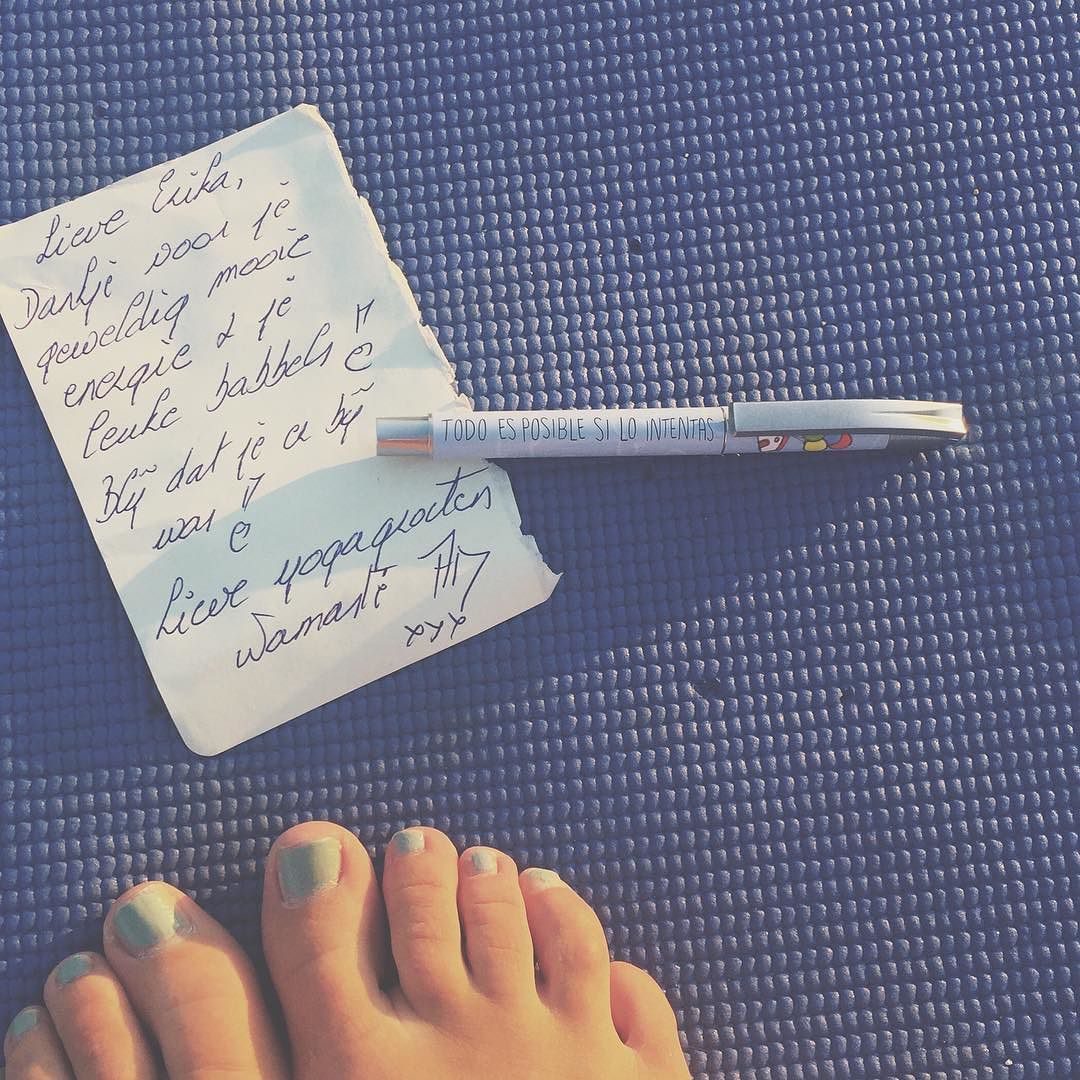 Lieve Erika,
Dankje voor je
geweldig mooie
energie & je
leuke babbels
Blij dat je er bij
was
Lieve yogagroeten
Namasté
xxx
TODO ES POSIBLE SI LO INTENTAS